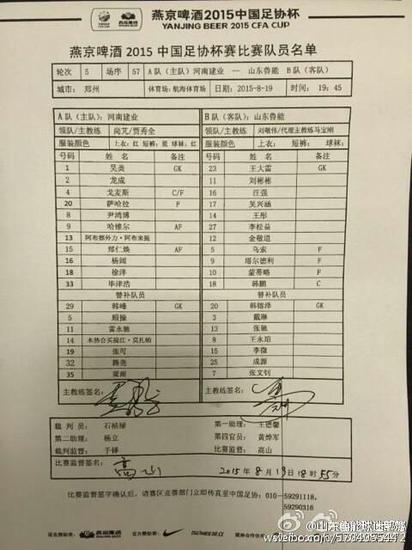 燕京啤酒2015中国足协杯
YANJING BEER 2015 CFA CUP
燕京啤酒 2015 中国足协杯赛比赛队员名单
轮次 5 场序 57 A队（主队）河南建业 — 山东鲁能 B队（客队）
城市： 郑州 体育场：航海体育场 日期：2015-8-19 时间：19：45
A队（主队）：河南建业 B队（客队）：山东鲁能
领队/主教练 尚艽/贾秀全 领队/主教练 刘敬伟/代理主教练马宝刚
服装颜色 上衣：红 短裤：蓝 球袜：红 服装颜色 上衣： 短裤： 球袜：
号码 姓名 备注 号码 姓名 备注
1 吴炎 GK 23 王大雷 GK
2 龙成 11 刘彬彬
4 戈麦斯 C/F 16 汪强
20 萨哈拉 F 17 吴兴涵
8 尹鸿博 14 王彤
9 哈维尔 AF 27 李松益
13 阿布都外力·阿布来提 12 金敬道
15 郑仁焕 AF 5 乌索 F
16 杨阔 9 塔尔德利 F
18 徐洋 10 蒙蒂略 F
33 毕津浩 18 韩鹏 C
替补队员 替补队员
29 韩峰 GK 20 韩镕泽 GK
5 顾操 3 戴琳
11 雷永驰 13 张驰
14 木热合买提江·莫扎帕 8 王永珀
19 张可 15 李微
32 陈亮 25 成源
35 7 张文钊
主教练签名： 主教练签名：
裁判员 石祯禄 第一助理
第二助理 杨立 第四官员 黄烨军
比赛监督 于锋 比赛监督 高山
比赛监督签名 高山 2015年8月19日18时55分
比赛监督签字确认后，请赛区竞赛部门立即传真至中国足协：010—59291118、
59290316
燕京啤酒